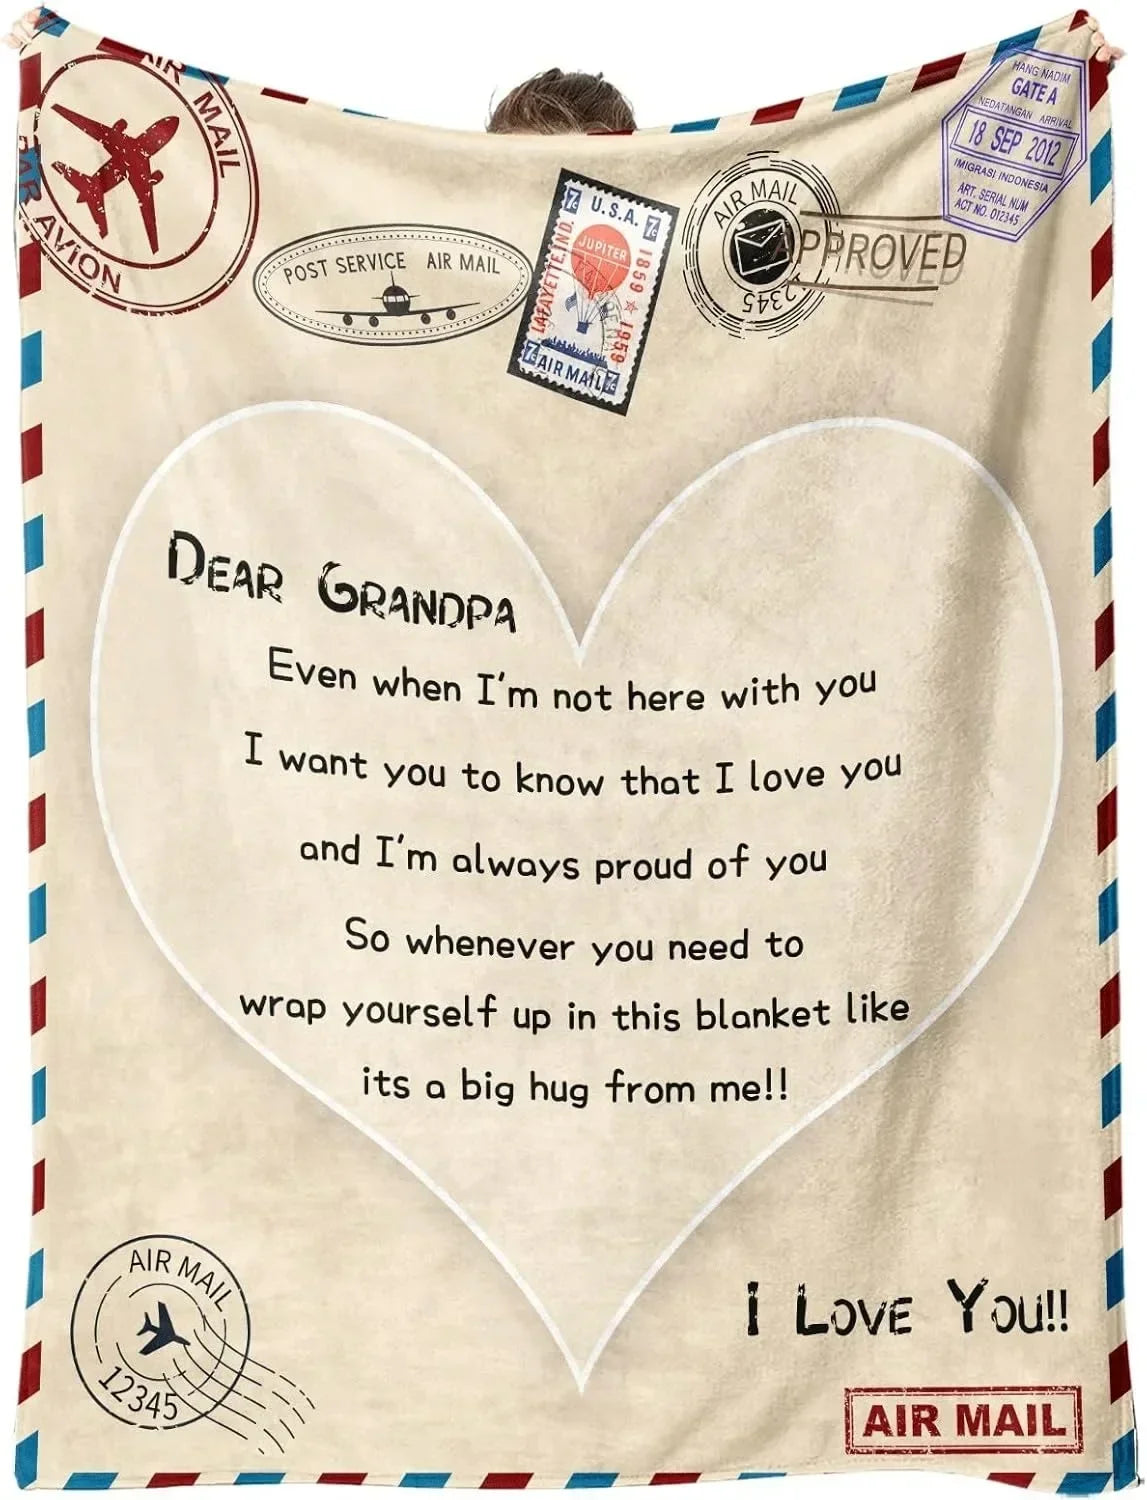 AIR MAIL
PAR AVION
POST SERVICE AIR MAIL
7c U.S.A. 7c
LAFAYETTE, IND.
JUPITER
1859 ★ 1959
7c AIR MAIL 7c
AIR MAIL
12345
APPROVED
HANG NADIM
GATE A
NEDATANGAN ARRIVAL
18 SEP 2012
IMIGRASI INDONESIA
ART. SERIAL NUM
ACT NO. 012345
DEAR GRANDPA
Even when I'm not here with you
I want you to know that I love you
and I'm always proud of you
So whenever you need to
wrap yourself up in this blanket like
its a big hug from me!!
AIR MAIL
12345
I LOVE YOU!!
AIR MAIL